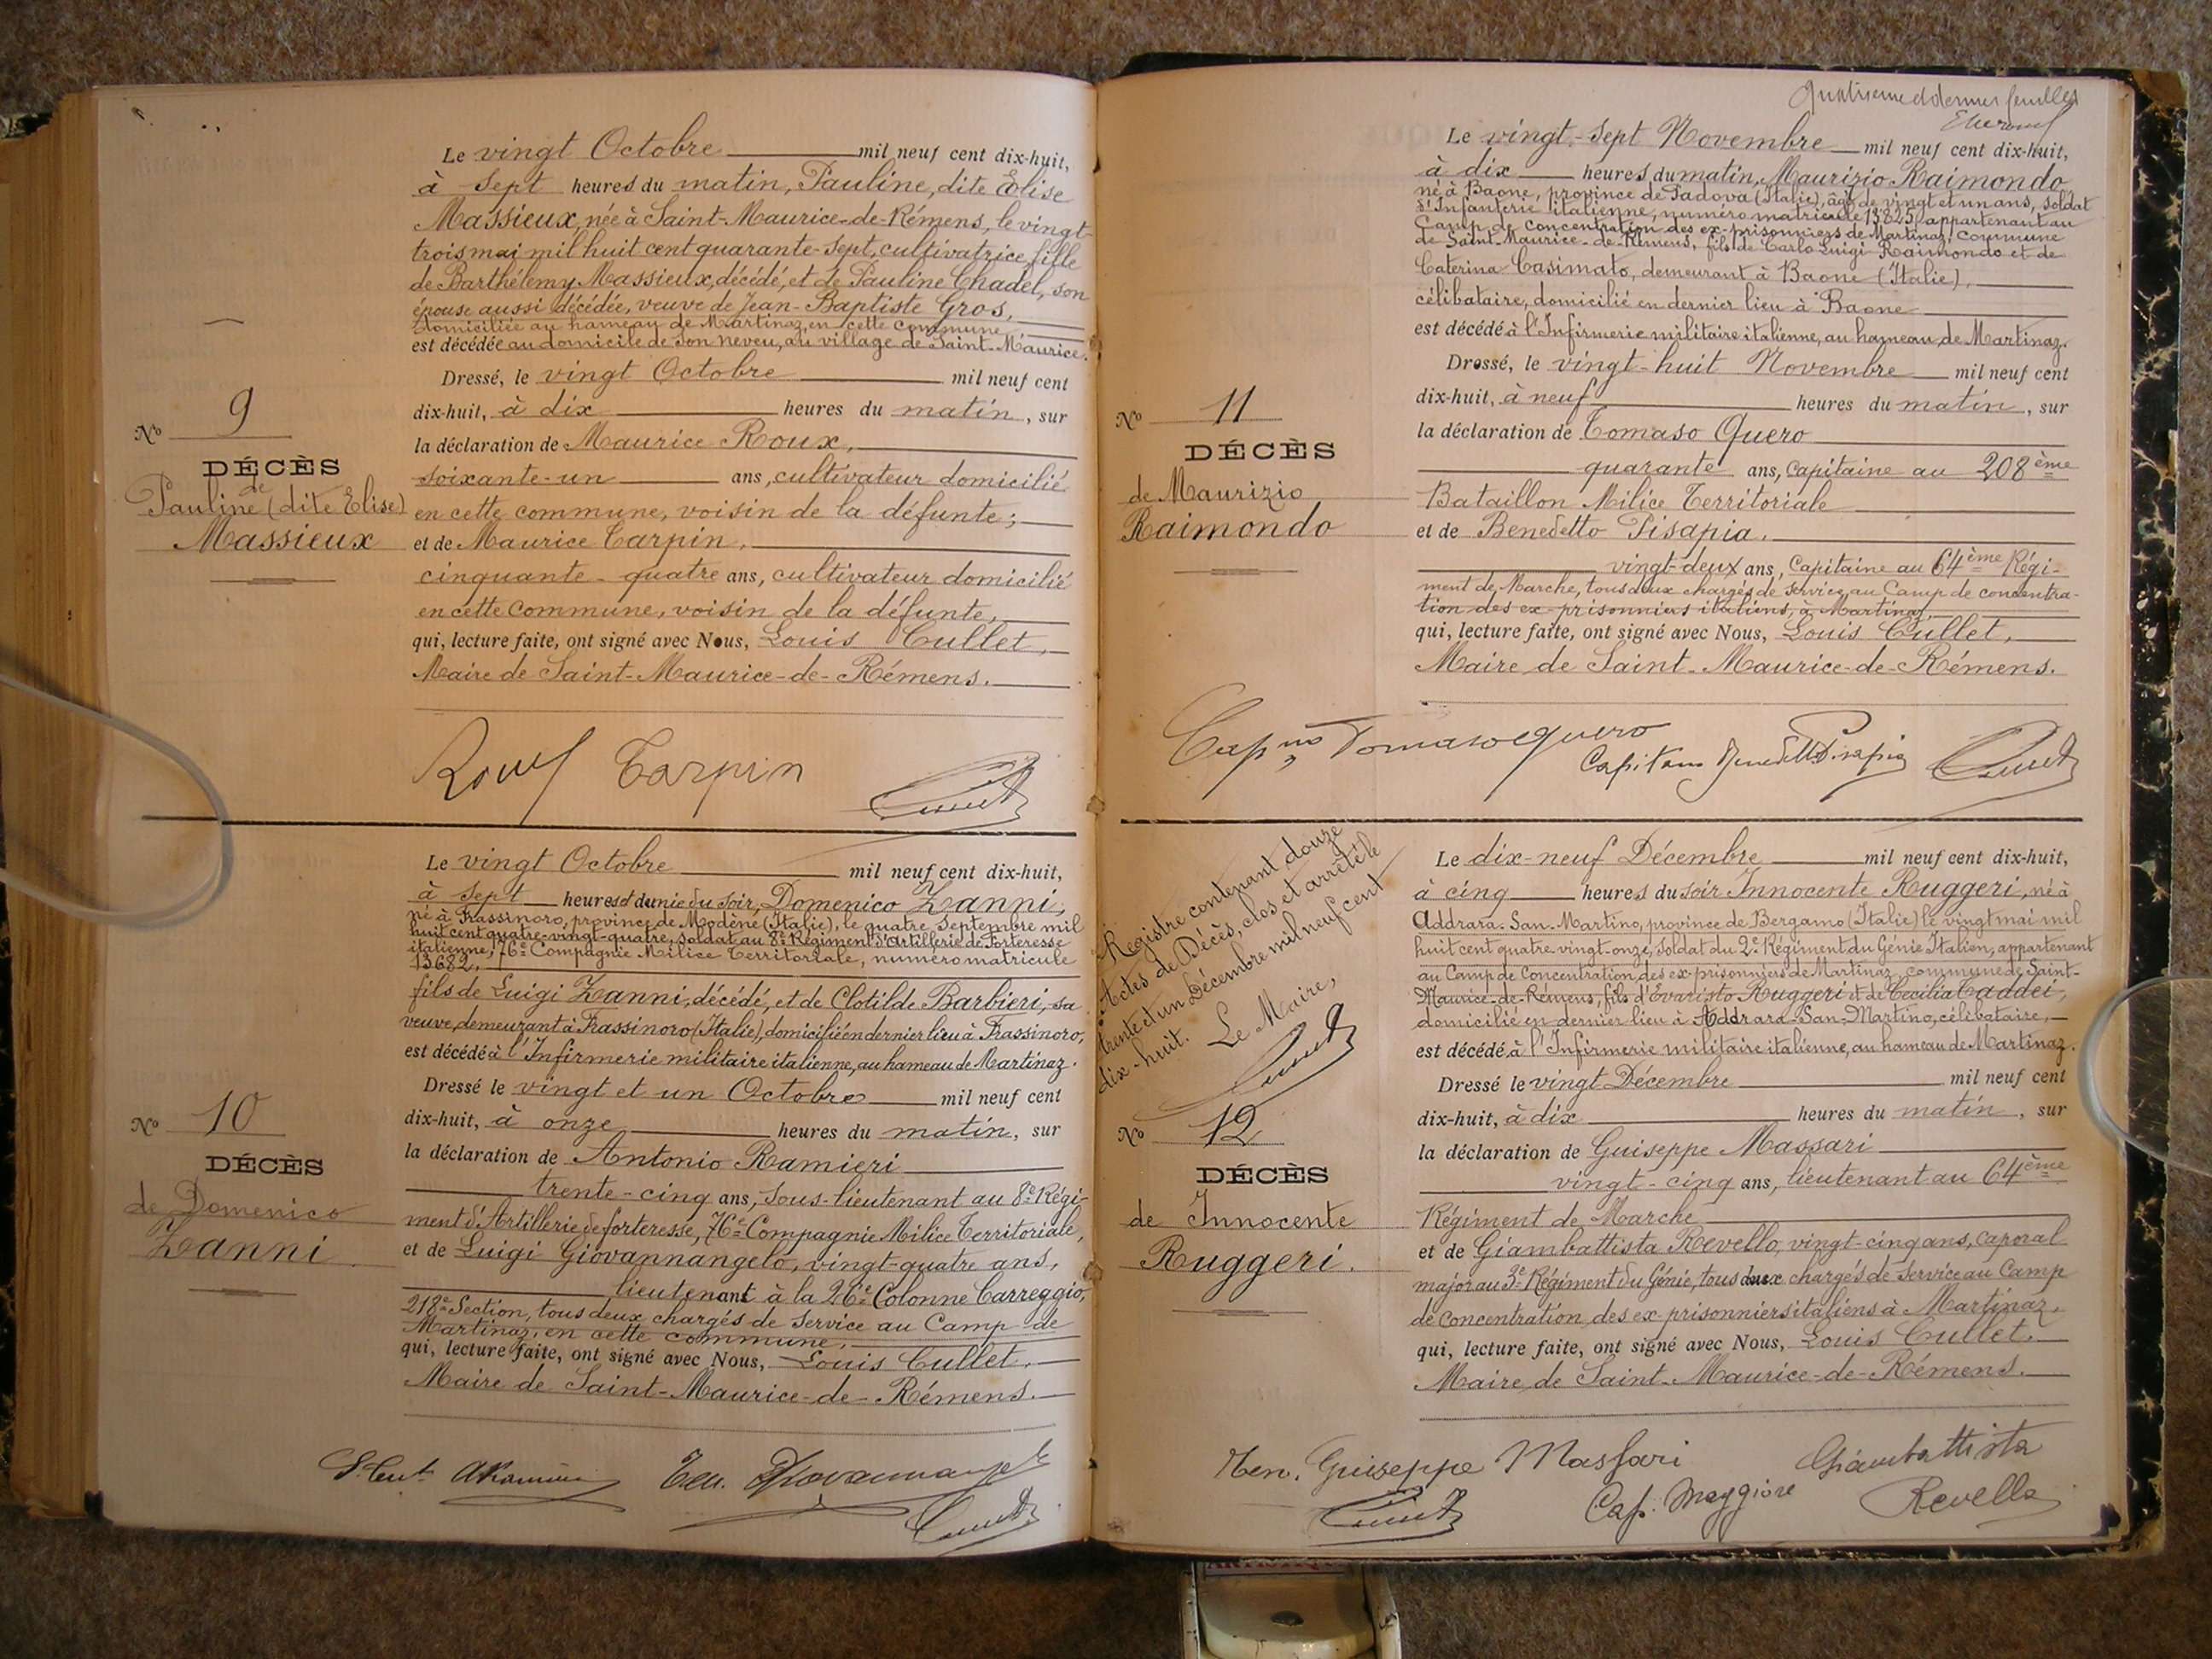 Le vingt Octobre mil neuf cent dix-huit,
à sept heures du matin, Pauline, dite Elise
Massieux, née à Saint-Maurice-de-Rémens, le vingt-
trois mai mil huit cent quarante-sept, cultivatrice, fille
de Barthélemy Massieux, décédé, et de Pauline Chadel, son
épouse aussi décédée, veuve de Jean-Baptiste Gros,
domiciliée au hameau de Martinaz, en cette commune,
est décédée au domicile de son neveu, au village de Saint-Maurice.
Dressé, le vingt Octobre mil neuf cent
dix-huit, à dix heures du matin, sur
la déclaration de Maurice Roux,
soixante-un ans, cultivateur domicilié
en cette commune, voisin de la défunte;
et de Maurice Carpin,
cinquante-quatre ans, cultivateur domicilié
en cette commune, voisin de la défunte,
qui, lecture faite, ont signé avec Nous, Louis Cullet,
Maire de Saint-Maurice-de-Rémens.
Nº 9
DÉCÈS
de
Pauline (dite Elise)
Massieux
Roux Carpin Cullet
Le vingt Octobre mil neuf cent dix-huit,
à sept heures et demie du soir, Domenico Zanni,
né à Frassinoro, province de Modène (Italie), le quatre Septembre mil
huit cent quatre-vingt-quatre, soldat au 8e Régiment d'Artillerie de Forteresse
italienne, 76e Compagnie Milice Territoriale, numéro matricule
13682,
fils de Luigi Zanni, décédé, et de Clotilde Barbieri, sa
veuve, demeurant à Frassinoro (Italie), domicilié en dernier lieu à Frassinoro,
est décédé à l'Infirmerie militaire italienne, au hameau de Martinaz.
Dressé le vingt et un Octobre mil neuf cent
dix-huit, à onze heures du matin, sur
la déclaration de Antonio Ramieri
trente-cinq ans, sous-lieutenant au 8e Régi-
ment d'Artillerie de forteresse, 76e Compagnie Milice Territoriale,
et de Luigi Giovannangelo, vingt-quatre ans,
lieutenant à la 26e Colonne Carreggio,
218e Section, tous deux chargés de service au Camp de
Martinaz, en cette commune,
qui, lecture faite, ont signé avec Nous, Louis Cullet,
Maire de Saint-Maurice-de-Rémens.
Nº 10
DÉCÈS
de Domenico
Zanni
Cullet
Quatrième et dernier feuillet
Le vingt-sept Novembre mil neuf cent dix-huit,
à dix heures du matin, Maurizio Raimondo
né à Baone, province de Padova (Italie), âgé de vingt et un ans, soldat
d'Infanterie italienne, numéro matricule 13825, appartenant au
Camp de Concentration des ex-prisonniers de Martinaz, commune
de Saint-Maurice-de-Rémens, fils de Carlo Luigi Raimondo et de
Caterina Casimato, demeurant à Baone (Italie),
célibataire, domicilié en dernier lieu à Baone
est décédé à l'Infirmerie militaire italienne, au hameau de Martinaz.
Dressé, le vingt-huit Novembre mil neuf cent
dix-huit, à neuf heures du matin, sur
la déclaration de Tomaso Quero
quarante ans, Capitaine au 208ème
Bataillon Milice Territoriale
et de Benedetto Pisapia,
vingt-deux ans, Capitaine au 64ème Régi-
ment de Marche, tous deux chargés de service au Camp de concentra-
tion des ex-prisonniers italiens, à Martinaz,
qui, lecture faite, ont signé avec Nous, Louis Cullet,
Maire de Saint-Maurice-de-Rémens.
Nº 11
DÉCÈS
de Maurizio
Raimondo
Capno Tomaso Quero
Capitano Benedetto Pisapia Cullet
Registre contenant douze
Actes de Décès, clos et arrêté le
trente et un Décembre mil neuf cent
dix-huit. Le Maire,
Cullet
Le dix-neuf Décembre mil neuf cent dix-huit,
à cinq heures du soir Innocente Ruggeri, né à
Addrara-San-Martino, province de Bergamo (Italie) le vingt mai mil
huit cent quatre vingt-onze, soldat du 2e Régiment du Génie Italien, appartenant
au Camp de Concentration des ex-prisonniers de Martinaz, commune de Saint-
Maurice-de-Rémens, fils d'Evaristo Ruggeri et de Cecilia Caddei,
domicilié en dernier lieu à Addrara-San-Martino, célibataire,
est décédé à l'Infirmerie militaire italienne, au hameau de Martinaz.
Dressé le vingt Décembre mil neuf cent
dix-huit, à dix heures du matin, sur
la déclaration de Guiseppe Massari
vingt-cinq ans, lieutenant au 64ème
Régiment de Marche
et de Giambattista Revello, vingt-cinq ans, caporal
major au 3e Régiment du Génie, tous deux chargés de service au Camp
de concentration des ex-prisonniers italiens à Martinaz,
qui, lecture faite, ont signé avec Nous, Louis Cullet,
Maire de Saint-Maurice-de-Rémens.
Nº 12
DÉCÈS
de Innocente
Ruggeri.
Ten. Guiseppe Massari Giambattista
Cullet Cap. Maggiore Revello